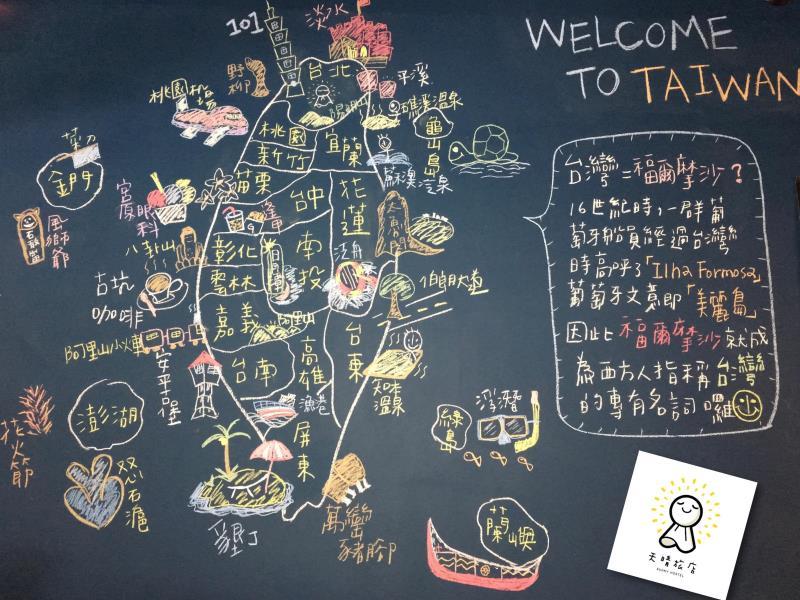 WELCOME
TO TAIWAN
台灣=福爾摩沙?
16世紀時,一群葡
萄牙船員經過台灣
時高呼了「Ilha Formosa」
葡萄牙文意即「美麗島」
因此福爾摩沙就成
為西方人指稱台灣
的專有名詞囉
101
淡水
野柳
台北
陽明山
平溪
桃園機場
礁溪溫泉
龜山島
桃園
新竹
宜蘭
菜刀
金門
蘇澳冷泉
苗栗
台中
花蓮
宮原眼科
風獅爺
逢甲
太魯閣
八卦山
彰化
南投
日月潭
泛舟
雲林
古坑
咖啡
伯朗大道
嘉義
阿里山
阿里山小火車
台東
高雄
台南
安平古堡
知本
溫泉
澎湖
漁港
花火節
浮潛
綠島
屏東
雙心石滬
蘭嶼
墾丁
萬巒
豬腳
天晴旅店
SUNNY HOSTEL